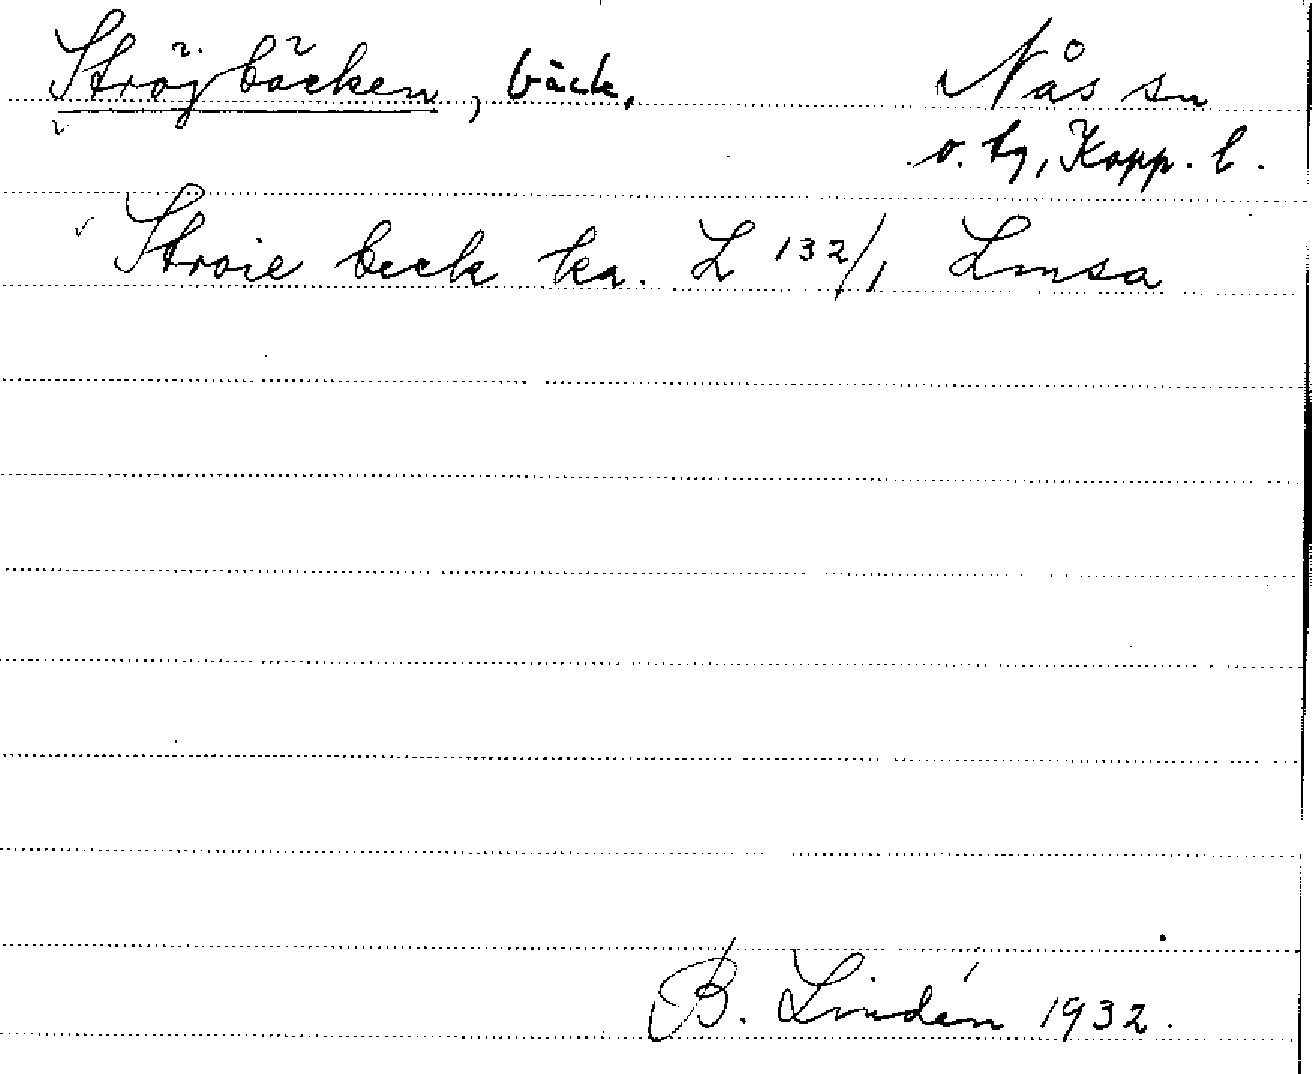 Ströjbäcken, bäck. Nås sn
o. tg, Kopp. l.
Stroie beck ka. L 132/1 Lmsa
B. Lindén 1932.